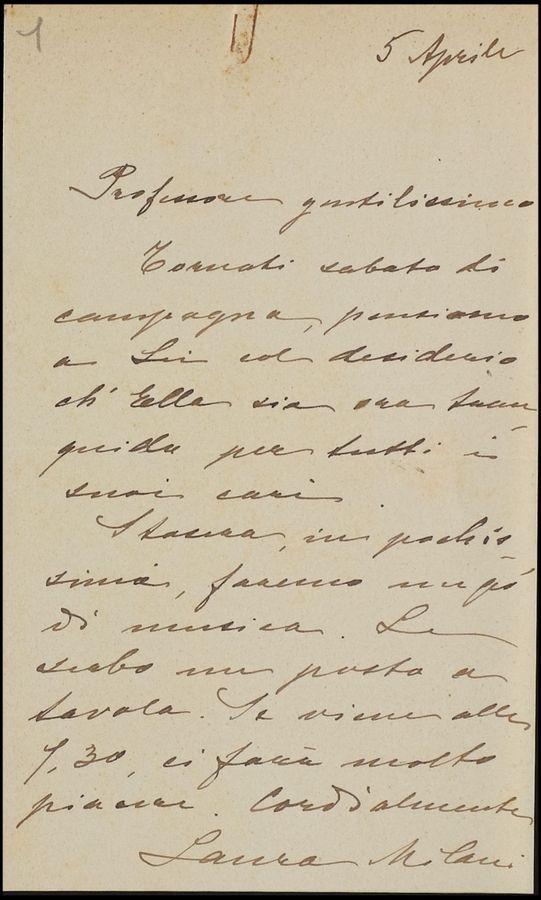 1
5 Aprile
Professore gentilissimo
Tornati sabato di
campagna, pensiamo
a Lei col desiderio
ch' Ella sia ora tran
quilla per tutti i
suoi cari.
Stasera, in pochis-
simi, faremo un po'
di musica. Le
serbo un posto a
tavola. Se viene alle
7,30, ci farà molto
piacere. Cordialmente
Laura Milani